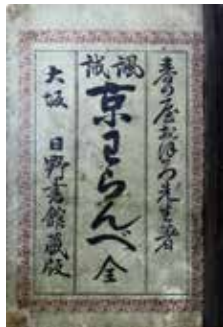 春の屋おぼろ先生著
諷誡
京わらんべ 全
大坂 日野書館藏版